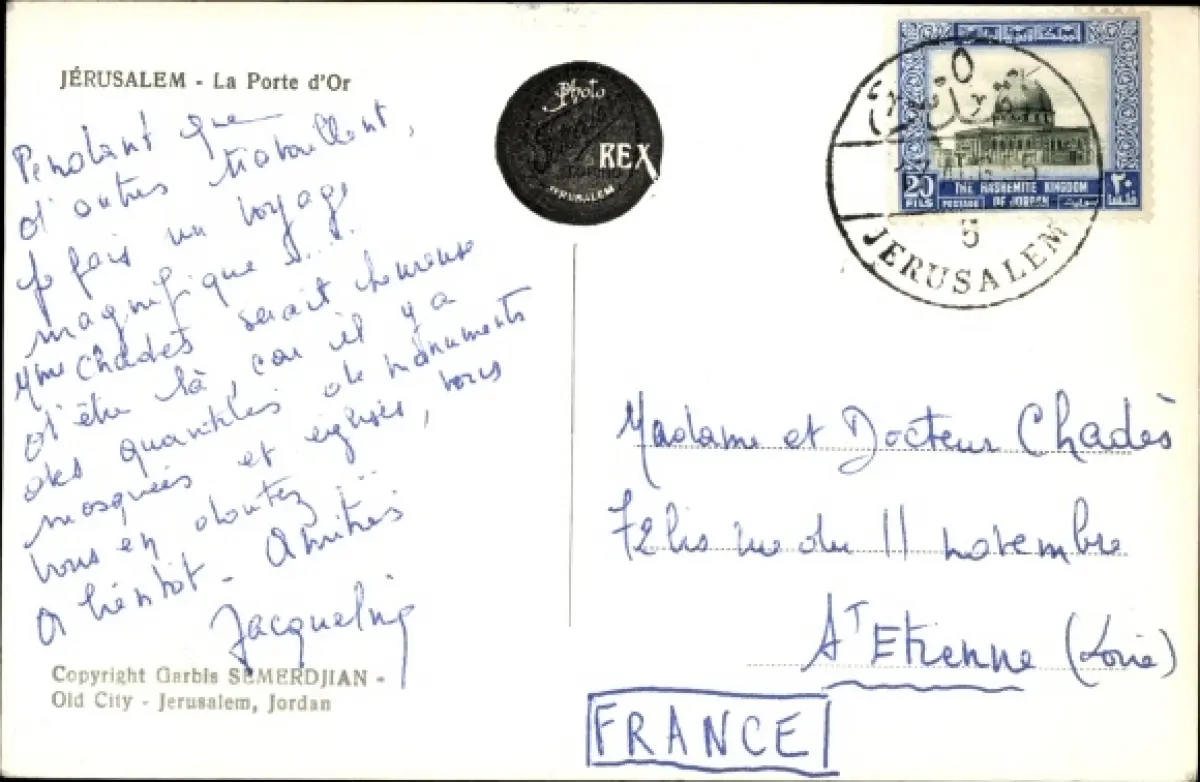 JÉRUSALEM - La Porte d'Or
Pendant que
d'autres travaillent,
je fais un voyage
magnifique !...
Mme Chadès serait heureuse
d'être là, car il y a
des quantités de monuments
mosquées et églises, vous
vous en doutez ...
A bientôt - Amitiés
Jacqueline
Copyright Garbis SEMERDJIAN -
Old City - Jerusalem, Jordan
Photo
REX
JERUSALEM
20
FILS
THE HASHEMITE KINGDOM
OF JORDAN
POSTAGE
٢٠
JERUSALEM
Madame et Docteur Chadès
72 bis rue du 11 novembre
St Etienne (Loire)
FRANCE